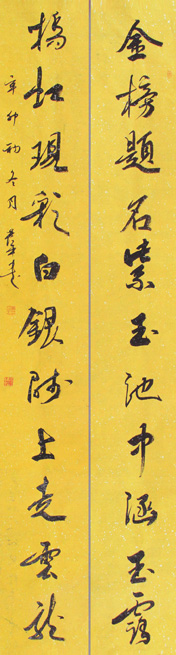 金榜題名紫玉池中涵玉露
橋虹現彩白銀牋上走雲龍
辛卯初冬月